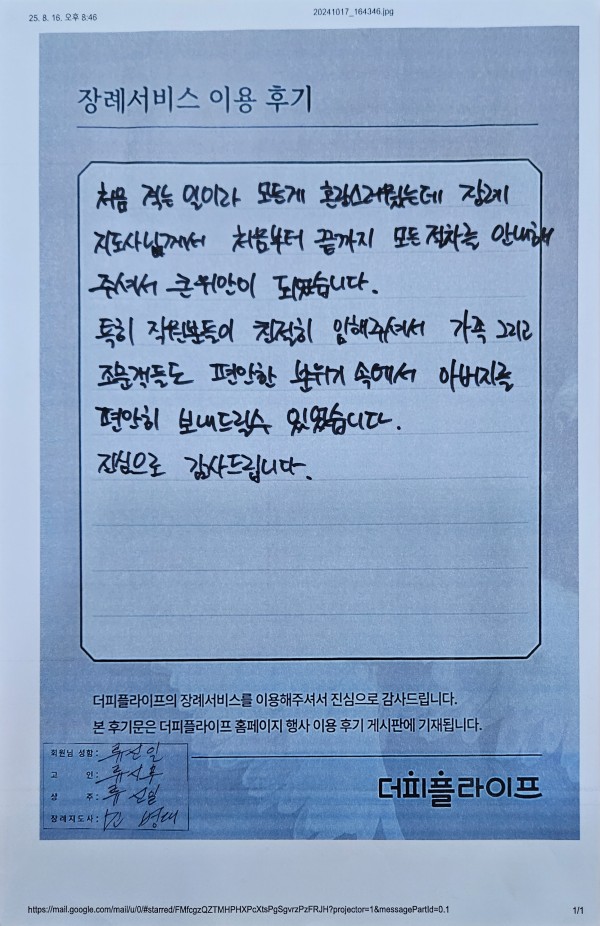 25. 8. 16. 오후 8:46
20241017_164346.jpg
장례서비스 이용 후기
처음 적는 일이라 모든게 혼랑스러웠는데 장례
지도사님께서 처음부터 끝까지 모든 절차를 안내해
주셔서 큰 위안이 되었습니다.
특히 직원분들이 친절히 임해주셔서 가족 그리고
조문객들도 편안한 분위기 속에서 아버지를
편안히 보내드릴수 있었습니다.
진심으로 감사드립니다.
더피플라이프의 장례서비스를 이용해주셔서 진심으로 감사드립니다.
본 후기문은 더피플라이프 홈페이지 행사 이용 후기 게시판에 기재됩니다.
회원님 성함 : 류선일
고 인 : 류시후
상 주 : 류선일
장례지도사 : 병대
더피플라이프
https://mail.google.com/mail/u/0/#starred/FMfcgzQZTMHPHXPcXtsPgSgvrzPzFRJH?projector=1&messagePartId=0.1
1/1